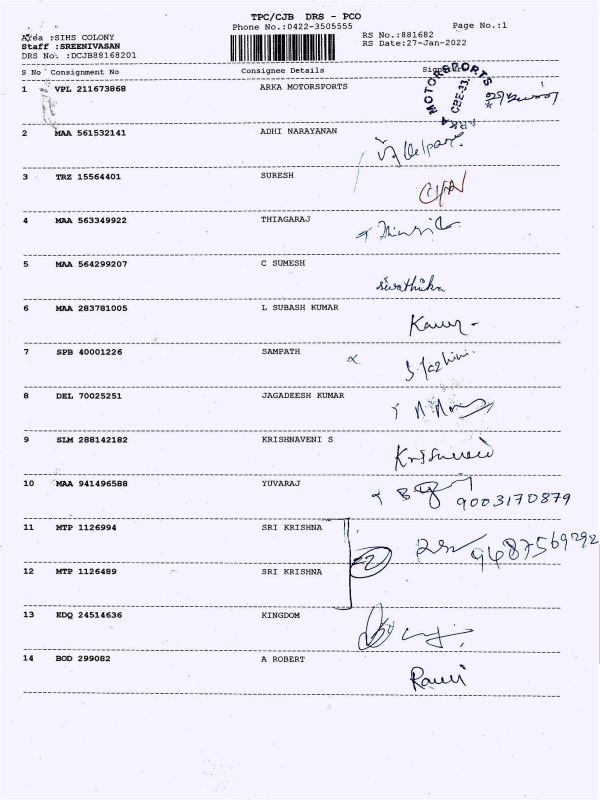 TPC/CJB DRS - PCO
Phone No.:0422-3505555
Page No.:1
Area :SIHS COLONY
Staff :SREENIVASAN
DRS No. :DCJB88168201
RS No.:881682
RS Date:27-Jan-2022
S No Consignment No Consignee Details Signature
1 VPL 211673868 ARKA MOTORSPORTS
ARKA MOTORSPORTS CBE-33.
2 MAA 561532141 ADHI NARAYANAN
3 TRZ 15564401 SURESH
4 MAA 563349922 THIAGARAJ
5 MAA 564299207 C SUMESH
Swathika
6 MAA 283781005 L SUBASH KUMAR
7 SPB 40001226 SAMPATH
8 DEL 70025251 JAGADEESH KUMAR
9 SLM 288142182 KRISHNAVENI S
10 MAA 941496588 YUVARAJ
9003170879
11 MTP 1126994 SRI KRISHNA
9487569292
12 MTP 1126489 SRI KRISHNA
13 EDQ 24514636 KINGDOM
14 BOD 299082 A ROBERT